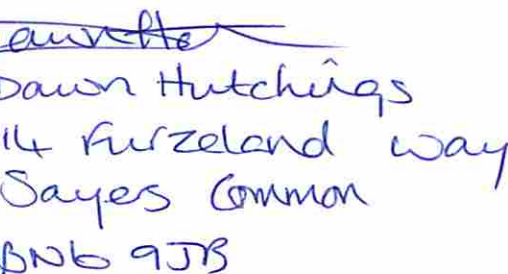 Dawn Hutchings
14 Furzeland way
Sayes Common
BN6 9JB